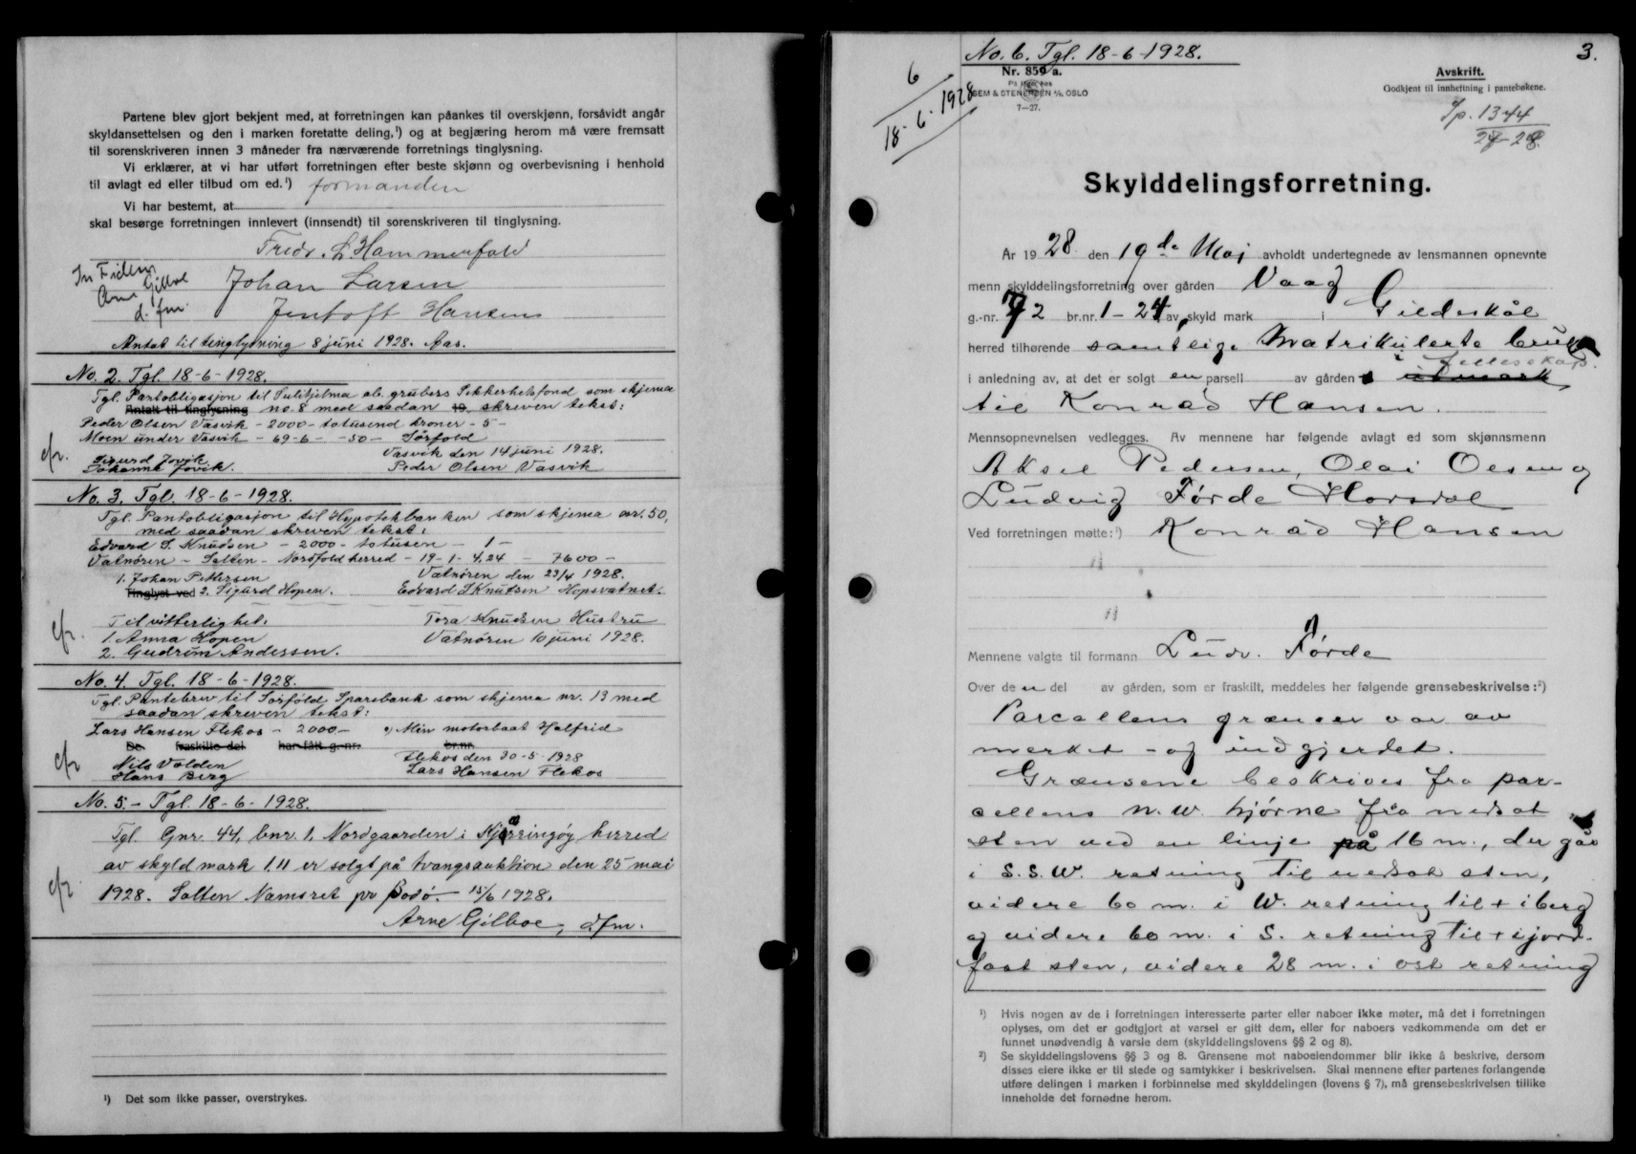 Partene blev gjort bekjent med, at forretningen kan påankes til overskjønn, forsåvidt angår
skyldansettelsen og den i marken foretatte deling,¹) og at begjæring herom må være fremsatt
til sorenskriveren innen 3 måneder fra nærværende forretnings tinglysning.
Vi erklærer, at vi har utført forretningen efter beste skjønn og overbevisning i henhold
til avlagt ed eller tilbud om ed.¹) formanden
Vi har bestemt, at
skal besørge forretningen innlevert (innsendt) til sorenskriveren til tinglysning.
Fredr. L. Hammerfald
In Fidem
Arne Gilboe
d. fm.
Johan Larsen
Jentoft Hansen
Antat til tinglysning 8 juni 1928. Aas.
No. 2. Tgl. 18-6-1928.
Tgl. Pantobligasjon til Sulitjelma ab. grubers Sikkerhetsfond som skjema
Antatt til tinglysning no. 8 med saadan 19. skreven tekst:
Peder Olsen Vasvik - 2000- totusend kroner - 5 -
Moen under Vasvik - 69-6 - -50 - Sørfold
cfr.
Sigurd Jovik
Johanna Jovik.
Vasvik den 14 juni 1928.
Peder Olsen Vasvik
No. 3. Tgl. 18-6-1928.
Tgl. Pantobligasjon til Hypotekbanken som skjema nr. 50,
med saadan skreven tekst:
Edvard S. Knudsen - 2000- totusen - 1 -
Vatnøren - Salten - Nordfold herred - 19-1- 4,24 - 7600 -
1. Johan Pettersen
Vatnøren den 23/4 1928.
Tinglyst ved 2. Sigurd Hopen.
Edvard S Knutsen Hopsvatnet.
Til vitterlighet:
Tora Knudsen Hustru
cfr.
1. Anna Hopen
Vatnøren 10 juni 1928.
2. Gudrun Andersen.
No. 4. Tgl. 18-6-1928.
Tgl. Pantebrev til Sørfold Sparebank som skjema nr. 13 med
saadan skreven tekst:
Lars Hansen Flekos - 2000 - Min motorbaat Halfrid
De fraskilte del har fått g.-nr. br.nr.
cfr
Nils Valden
Hans Berg
Flekos den 30-5-1928
Lars Hansen Flekos
No. 5. - Tgl. 18-6-1928.
Tgl. Gnr. 44, bnr. 1, Nordgaarden i Kjerringøy herred
av skyld mark 1.11 er solgt på tvangsauktion den 25 mai
cfr
1928. Salten Namsret pr Bodø. - 15/6 1928.
Arne Gilboe, d.fm.
¹) Det som ikke passer, overstrykes.
No. 6. Tgl. 18-6-1928.
3.
6
18-6-1928
Nr. 859 a.
SEM & STENERSEN A/S, OSLO
7—27.
Avskrift.
Godkjent til innheftning i pantebøkene.
Jp. 1344
28
Skylddelingsforretning.
År 1928 den 19de Maj avholdt undertegnede av lensmannen opnevnte
menn skylddelingsforretning over gården Vaag
g.-nr. 72 br.nr. 1-24 av skyld mark i Gildeskål
herred tilhørende samtlige Matrikulerte bruk
i fellesskap.
i anledning av, at det er solgt en parsell av gården s utmark
til Konrad Hansen.
Mennsopnevnelsen vedlegges. Av mennene har følgende avlagt ed som skjønnsmenn
Aksel Pedersen, Olai Olsen og
Ludvig Førde Horsdal
Ved forretningen møtte:¹) Konrad Hansen
Mennene valgte til formann Ludv. Førde
Over de n del av gården, som er fraskilt, meddeles her følgende grensebeskrivelse:²)
Parcellens grænser var av
merket - og indgjerdet.
Grænsene beskrives fra par-
cellens N.W. hjørne fra nedsat
sten ved en linje på 16 m., der går
i S.S.W. retning til nedsat sten,
videre 60 m. i W. retning til + i berg
og videre 60 m. i S. retning til + i jord-
fast sten, videre 28 m. i ost retning
¹) Hvis nogen av de i forretningen interesserte parter eller naboer ikke møter, må det i forretningen
oplyses, om det er godtgjort at varsel er gitt dem, eller for naboers vedkommende om det er
funnet unødvendig å varsle dem (skylddelingslovens §§ 2 og 8).
²) Se skylddelingslovens §§ 3 og 8. Grensene mot naboeiendommer blir ikke å beskrive, dersom
disses eiere ikke er til stede og samtykker i beskrivelsen. Skal mennene efter partenes forlangende
utføre delingen i marken i forbinnelse med skylddelingen (lovens § 7), må grensebeskrivelsen tillike
inneholde det fornødne herom.